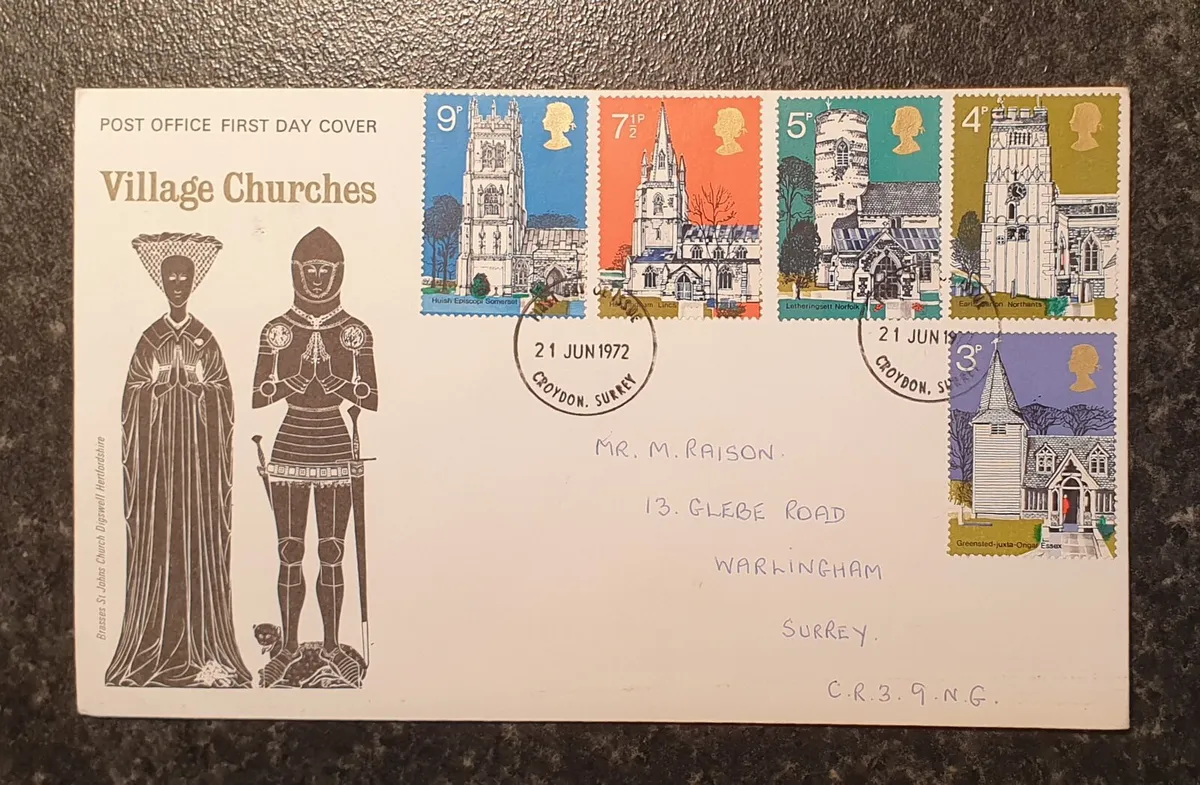 POST OFFICE FIRST DAY COVER
Village Churches
Brasses St Johns Church Digswell Hertfordshire
9P
Huish Episcopi Somerset
7½P
Lincs
5P
Letheringsett Norfolk
4P
Northants
3P
Greensted-juxta-Ongar Essex
ISSUE
21 JUN 1972
CROYDON. SURREY
21 JUN 19
CROYDON, SU
MR. M. RAISON.
13. GLEBE ROAD
WARLINGHAM
SURREY.
C.R.3.9.N.G.